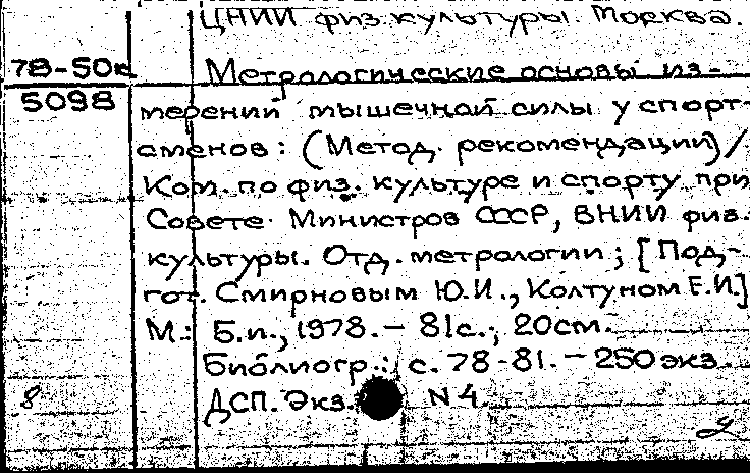 ЦНИИ физ.культуры. Москва.
78-50к Метрологические основы из-
5098 мерений мышечной силы у спорт-
сменов: (Метод. рекомендации) /
Ком. по физ. культуре и спорту при
Совете Министров СССР, ВНИИ физ.
культуры. Отд. метрологии; [Под-
гот. Смирновым Ю.И., Колтуном Е.И.]
М.: Б.и., 1978. – 81с.; 20см.
Библиогр.: с. 78-81. – 250 экз.
8 ДСП. Экз. N 4.